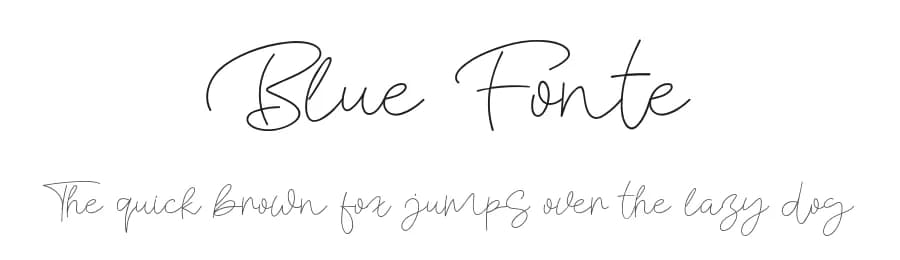 Blue Fonte
The quick brown fox jumps over the lazy dog